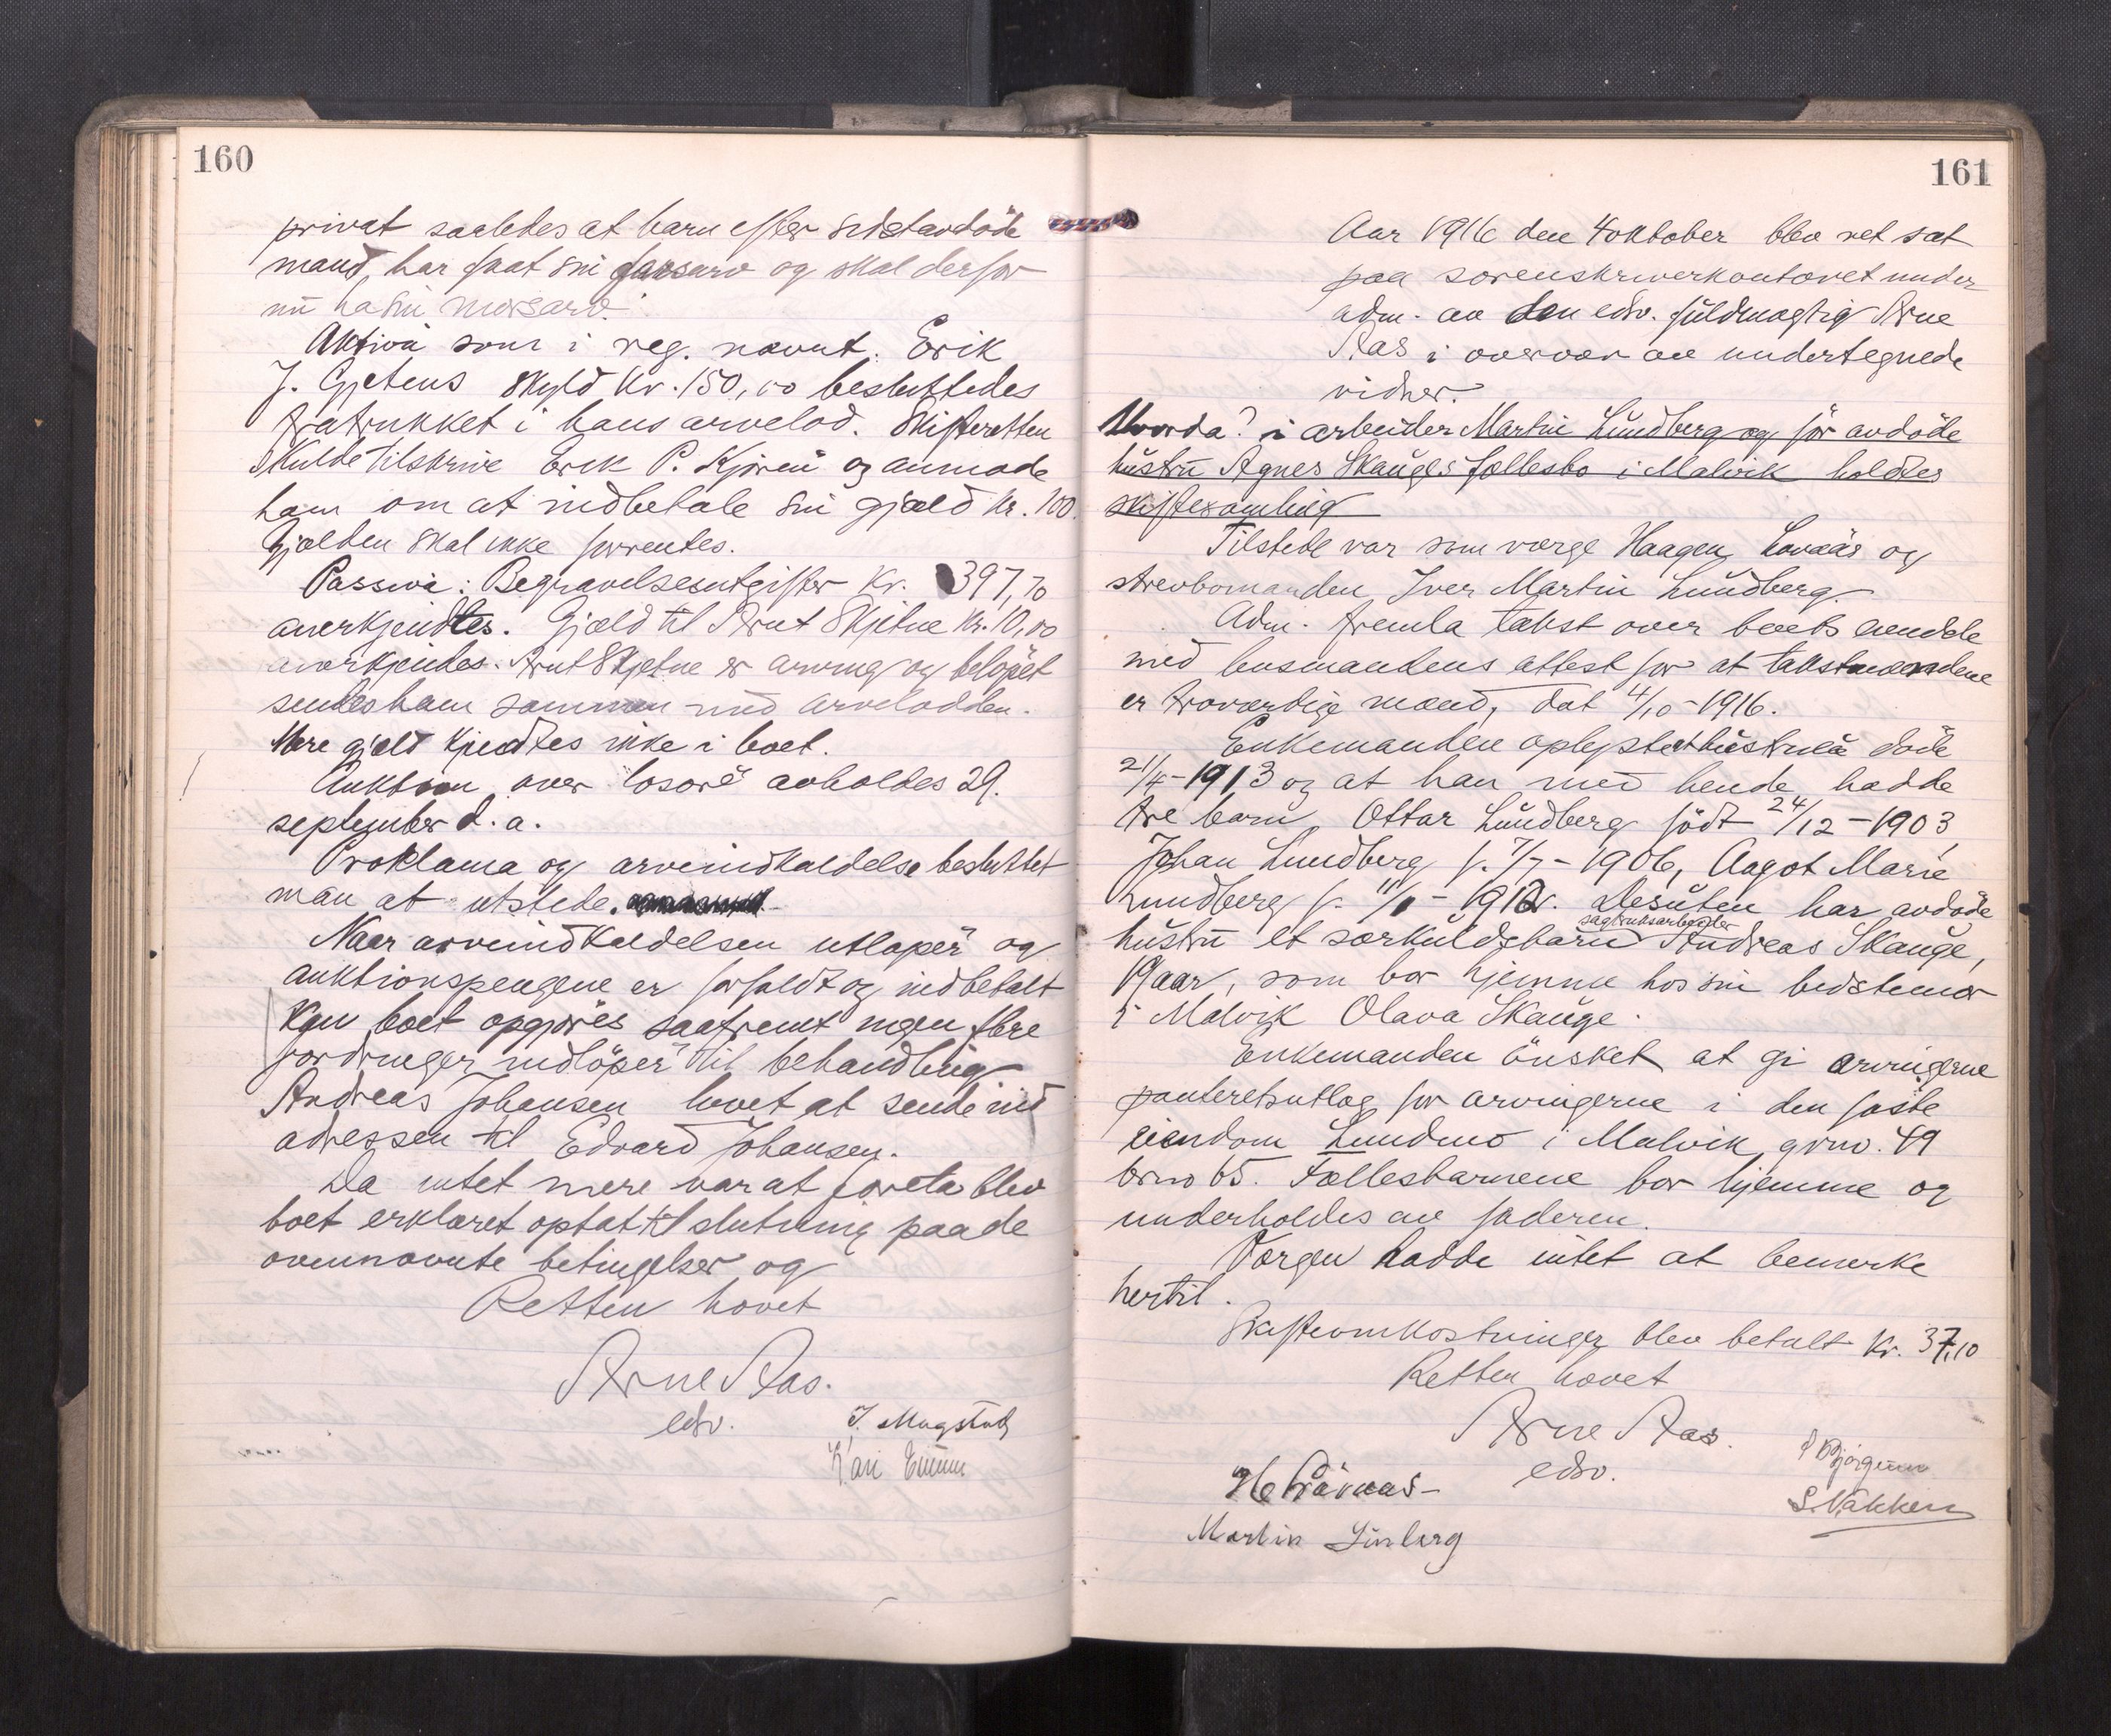 160
privat saaledes at barn efter sidstavdöde
mand, har faat sin farsarv og skal derfor
nu ha sin morsarv.
Aktiva som i reg. nævnt. Erik
J. Gjetens skyld kr. 150,00 besluttedes
fratrukket i hans arvelod. Skifteretten
skulde tilskrive Erik P. Kjören og anmode
ham om at indbetale sin gjæld kr. 100.
Gjælden skal ikke forrentes.
Passiva: Begravelsesutgifter kr. 397,70
anerkjendtes. Gjæld til Arnt Skjetne kr. 10,00
anerkjendes. Arnt Skjetne er arving og belöpet
sendes ham sammen med arvelodden.
Mere gjæld kjendtes ikke i boet.
Auktion over lösöre avholdes 29.
september d. a.
Proklama og arveindkaldelse besluttet
man at utstede.
Naar arveindkaldelsen utlöper og
auktionspengene er forfaldt og indbetalt
kan boet opgjöres saafremt ingen flere
fordringer indlöper til behandling
Andreas Johansen lovet at sende ind
adressen til Edvard Johansen.
Da intet mere var at foreta blev
boet erklæret optat til slutning paa de
ovennævnte betingelser og
Retten hævet
Arne Aas.
edsv.
J. Mugstad
Kari
161
Aar 1916 den 4 oktober blev ret sat
paa sorenskriverkontoret under
adm. av den edsv. fuldmægtig Arne
Aas i overvær av undertegnede
vidner.
Hvorda? i arbeider Martin Lundberg og før avdöde
hustru Agnes Skauges fællesbo i Malvik holdtes
skiftesamling
Tilstede var som værge Haagen Lovaas og
strevbomanden Iver Martin Lundberg.
Adm. fremla takst over boets eiendele
med lensmandens attest for at takstmændene
er troværdige mænd, dat 4/10-1916.
Enkemanden oplyste at hustruen döde
21/4-1913 og at han med hende hadde
tre barn, Ottar Lundberg födt 24/12-1903,
Johan Lundberg f. 7/7-1906, Aagot Marie
Lundberg f. 11/1-1912. Desuten har avdöde
sagbruksarbeider
hustru et særkuldsbarn Andreas Skauge,
19 aar, som bor hjemme hos sin bedstemor
i Malvik Olava Skauge.
Enkemanden önsket at gi arvingerne
panteretsutlæg for arvingerne i den faste
eiendom Lundmo i Malvik grno. 49
brno 65. Fællesbarnene bor hjemme og
underholdes av faderen.
Værgen hadde intet at bemerke
hertil.
Skifteomkostninger blev betalt kr. 37,10
Retten hævet
Arne Aas.
edsv.
S. Nakken
Martin Linberg